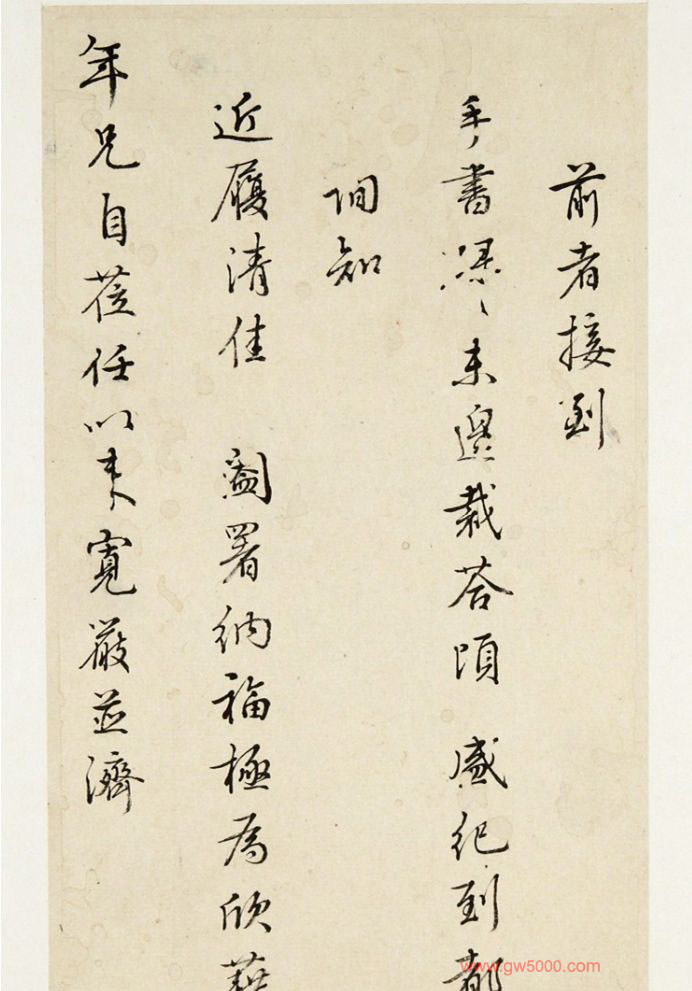 前者接到
手書濕〻未遑裁荅頃 盛紀到都
詗知
近履清佳 闔署納福極為欣藉
年兄自蒞任以來寬嚴並濟
www.gw5000.com